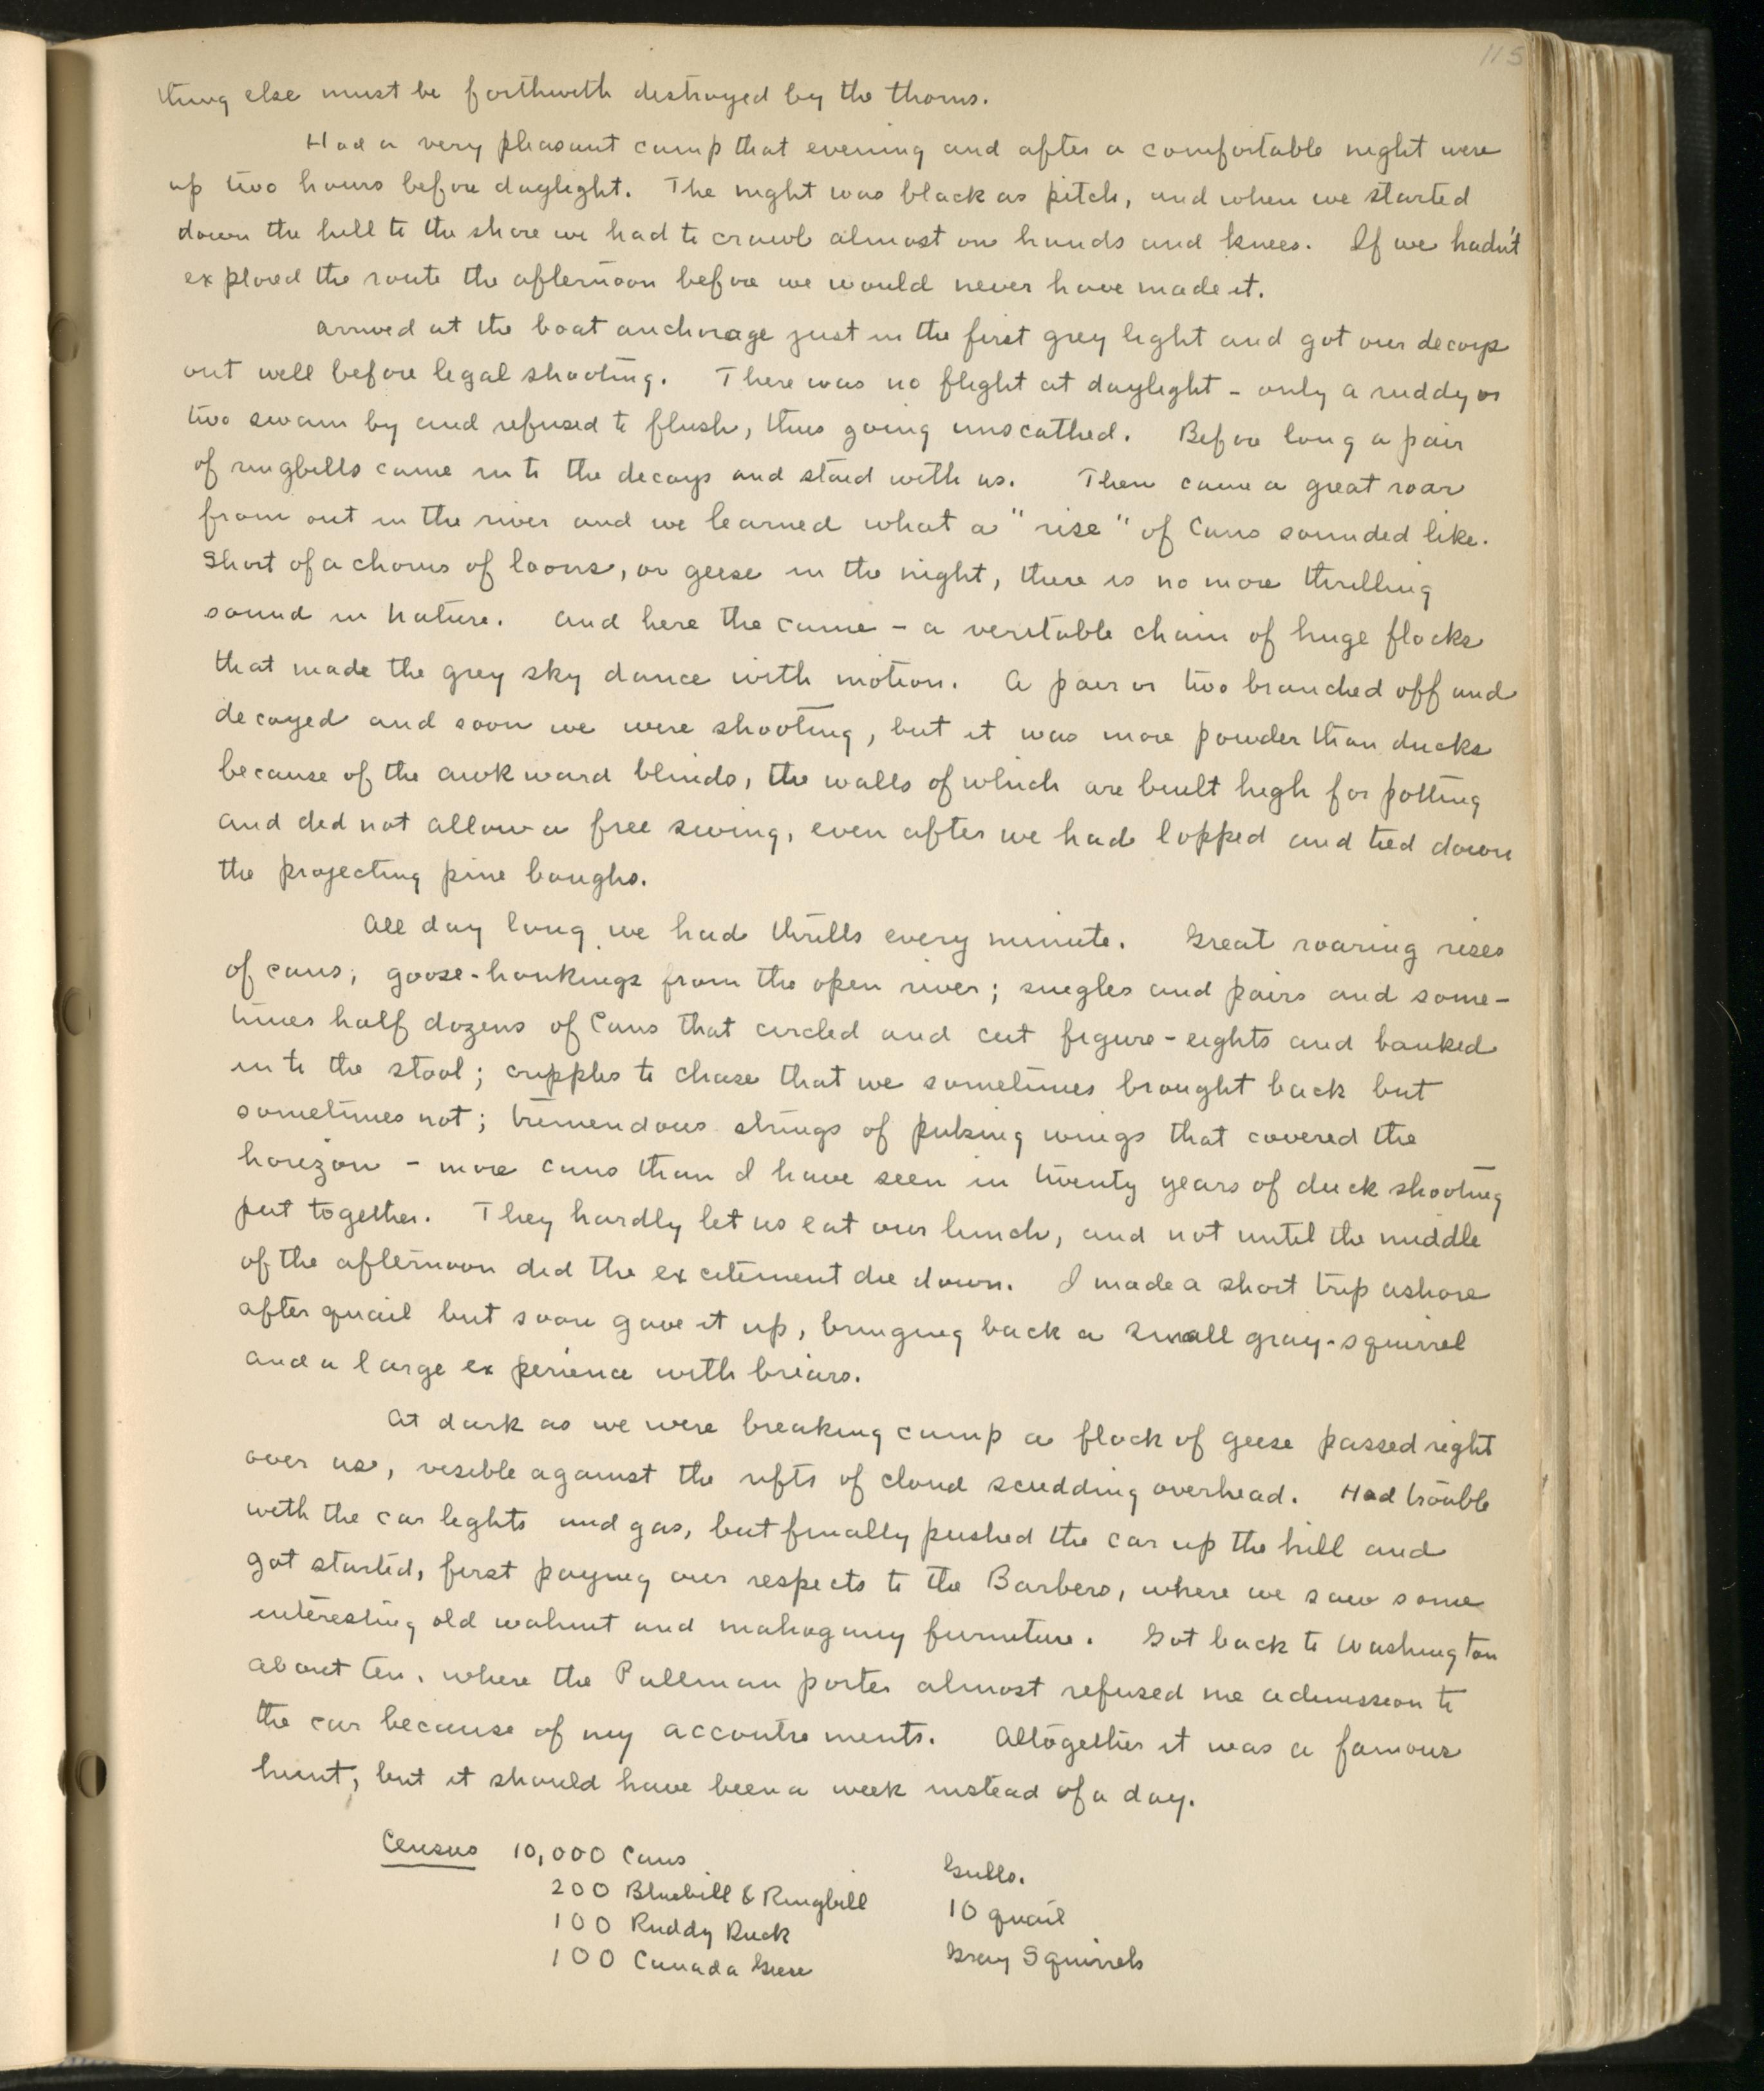 115
thing else must be forthwith destroyed by the thorns.
Had a very pleasant camp that evening and after a comfortable night were
up two hours before daylight. The night was black as pitch, and when we started
down the hill to the shore we had to crawl almost on hands and knees. If we hadn't
explored the route the afternoon before we would never have made it.
Arrived at the boat anchorage just in the first grey light and got our decoys
out well before legal shooting. There was no flight at daylight - only a ruddy or
two swam by and refused to flush, thus going unscathed. Before long a pair
of ringbills came in to the decoys and staid with us. Then came a great roar
from out in the river and we learned what a "rise" of Cans sounded like.
Short of a chorus of loons, or geese in the night, there is no more thrilling
sound in nature. And here the came - a veritable chain of huge flocks
that made the grey sky dance with motion. A pair or two branched off and
decoyed and soon we were shooting, but it was more powder than ducks
because of the awkward blinds, the walls of which are built high for potting
and did not allow a free swing, even after we had lopped and tied down
the projecting pine boughs.
All day long we had thrills every minute. Great roaring rises
of cans; goose-honkings from the open river; singles and pairs and some-
times half dozens of Cans that circled and cut figure-eights and banked
in to the stool; cripples to chase that we sometimes brought back but
sometimes not; tremendous strings of pulsing wings that covered the
horizon - more cans than I have seen in twenty years of duck shooting
put together. They hardly let us eat our lunch, and not until the middle
of the afternoon did the excitement die down. I made a short trip ashore
after quail but soon gave it up, bringing back a small gray-squirrel
and a large experience with briars.
At dark as we were breaking camp a flock of geese passed right
over us, visible against the rifts of cloud scudding overhead. Had trouble
with the car lights and gas, but finally pushed the car up the hill and
got started, first paying our respects to the Barbers, where we saw some
interesting old walnut and mahogany furniture. Got back to Washington
about ten, where the Pullman porter almost refused me admission to
the car because of my accoutrements. Altogether it was a famous
hunt, but it should have been a week instead of a day.
Census 10,000 Cans
200 Bluebill & Ringbill
100 Ruddy Duck
100 Canada Geese
Gulls.
10 quail
Gray Squirrels